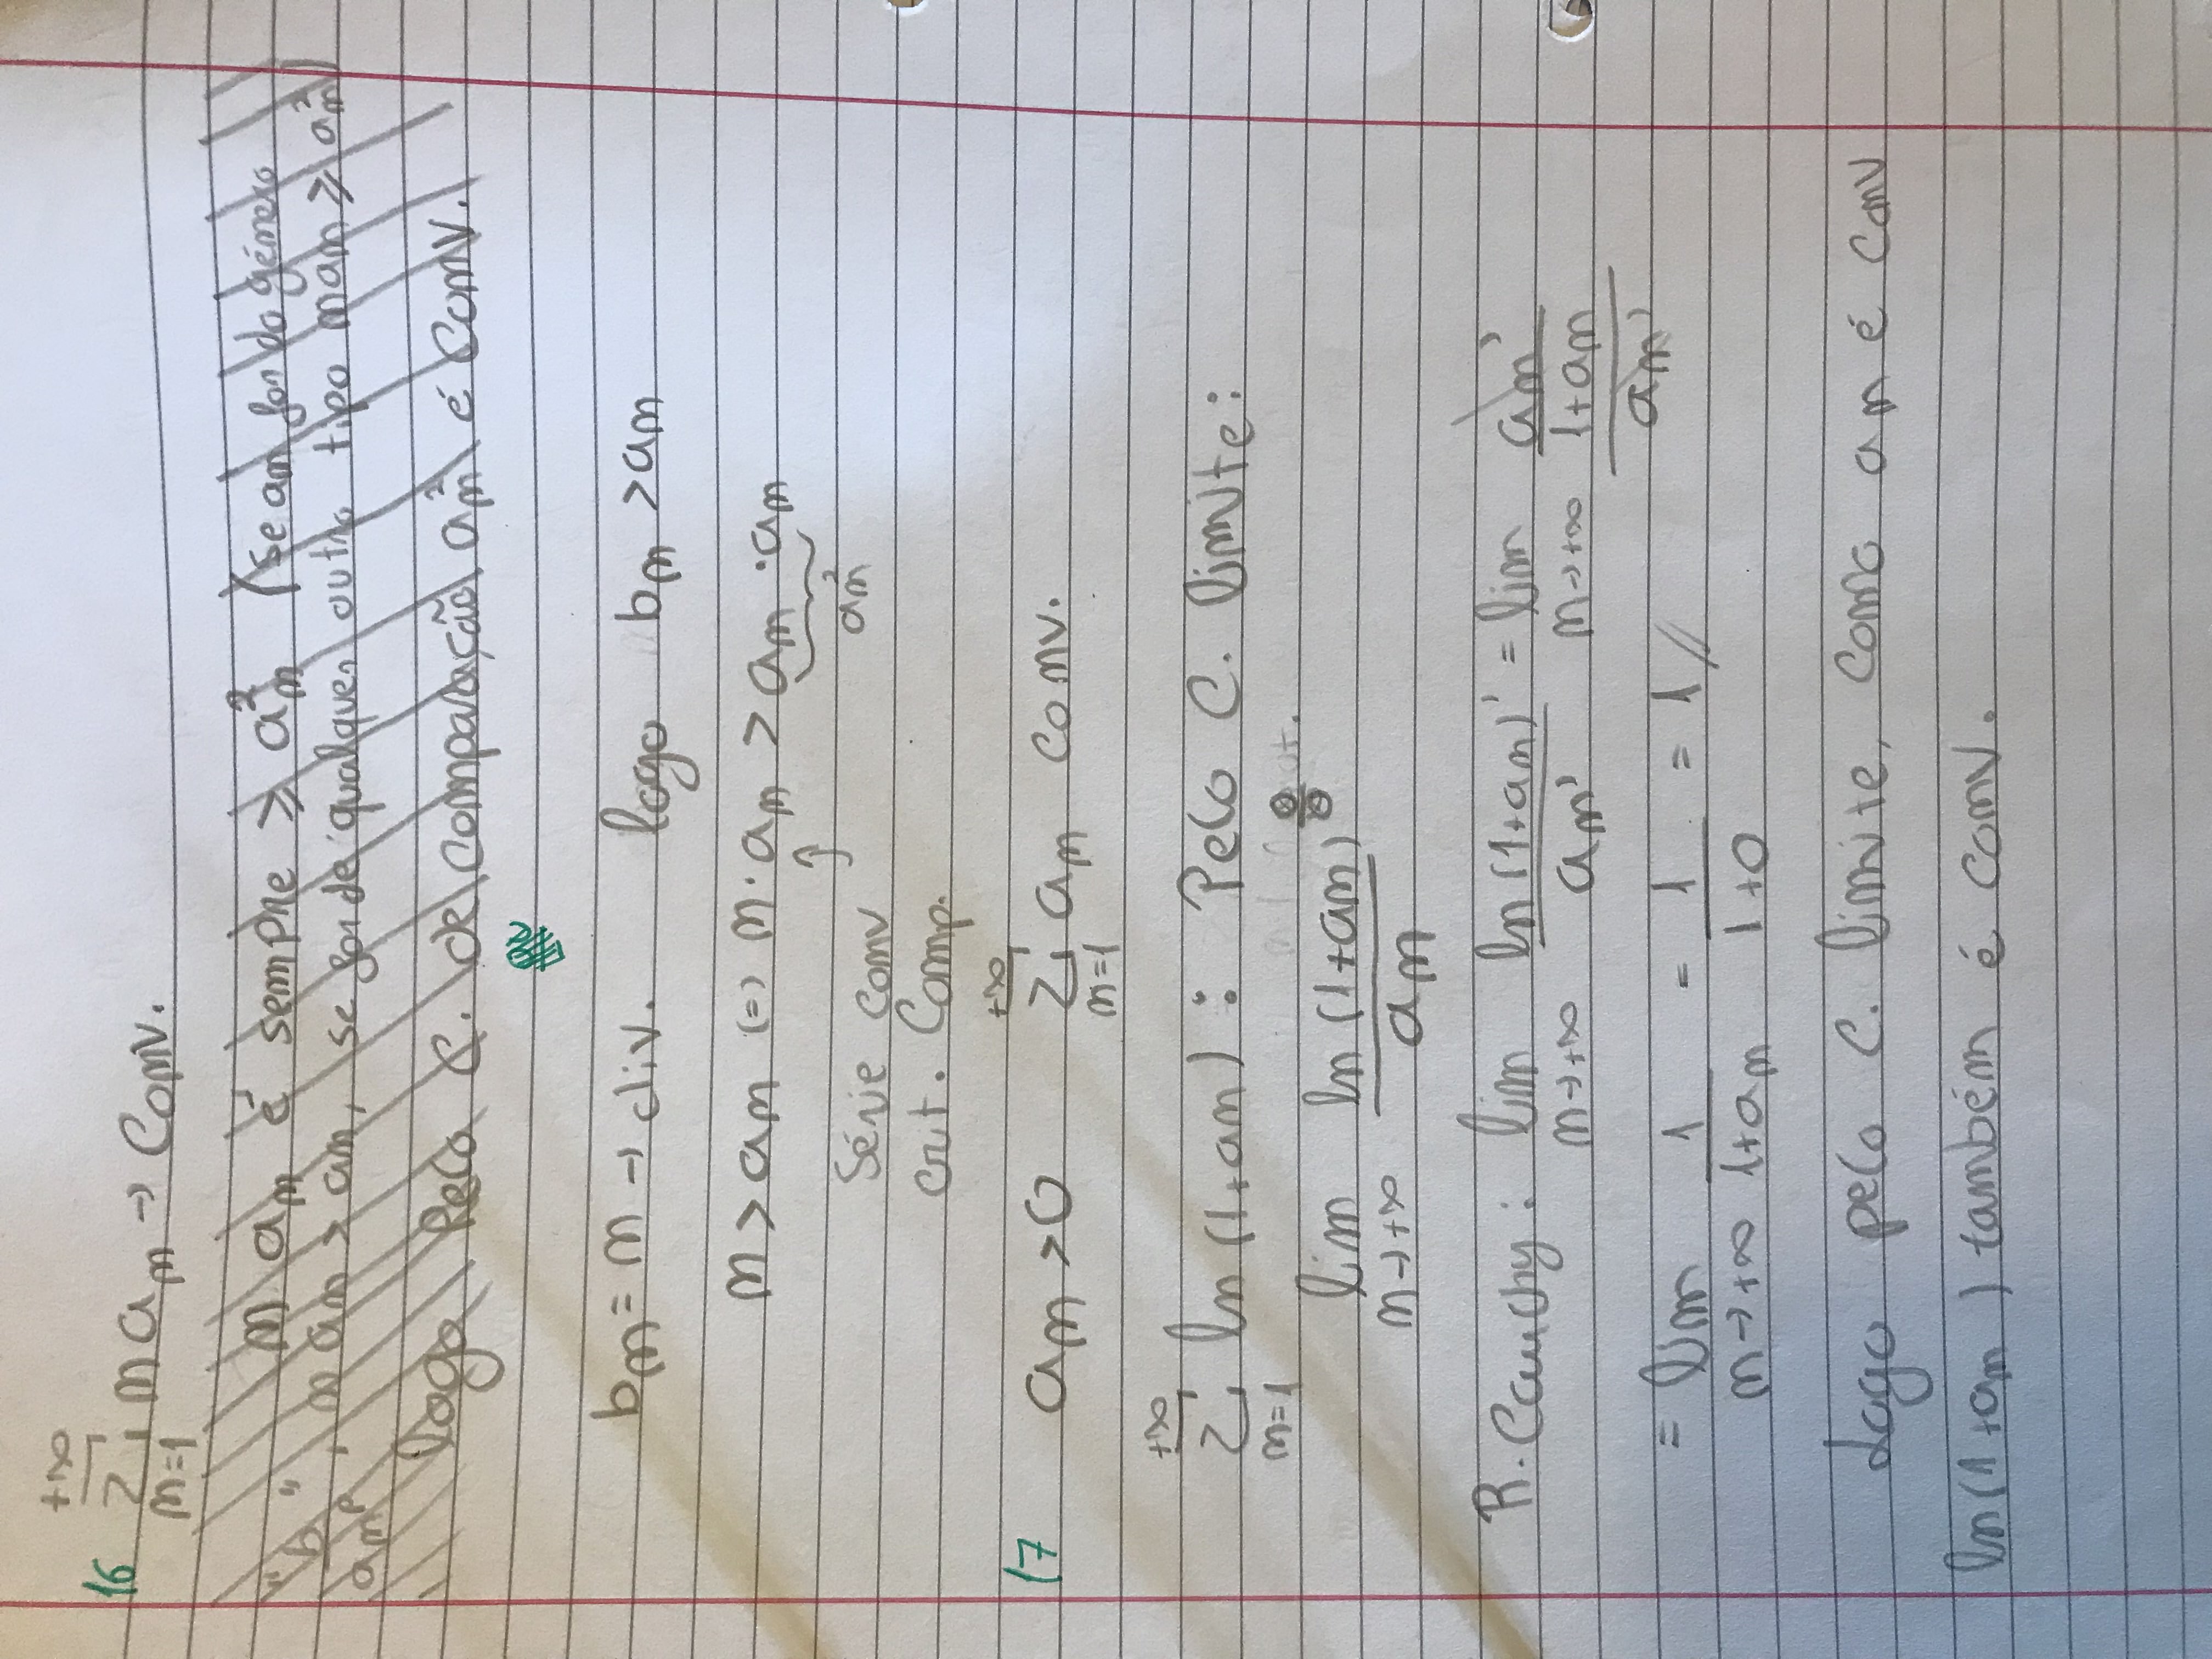 16 +∞
∑ m a_m → Conv.
m=1
m a_m é sempre ≥ a_m² (se am for do género
"b/am^p", m am > am, se for de qualquer outro tipo mam ≥ a_m²)
logo Pelo C. de comparação a_m² é Conv.
b_m = m → div. logo b_m > am
m > am (=) m · a_m > am · am
↑ a_m²
Série conv
crit. Comp.
17 a_m > 0 +∞ ∑ m=1 a_m conv.
+∞
∑ ln(1+am) : Pelo C. limite:
m=1
lim ln(1+am) 0/0
m→+∞ a_m
R. Cauchy: lim ln(1+am)' = lim am'
m→+∞ am' m→+∞ 1+am
am'
= lim 1 = 1 = 1 //
m→+∞ 1+a_m 1+0
Logo pelo C. limite, como am é conv
ln(1+am) também é conv.